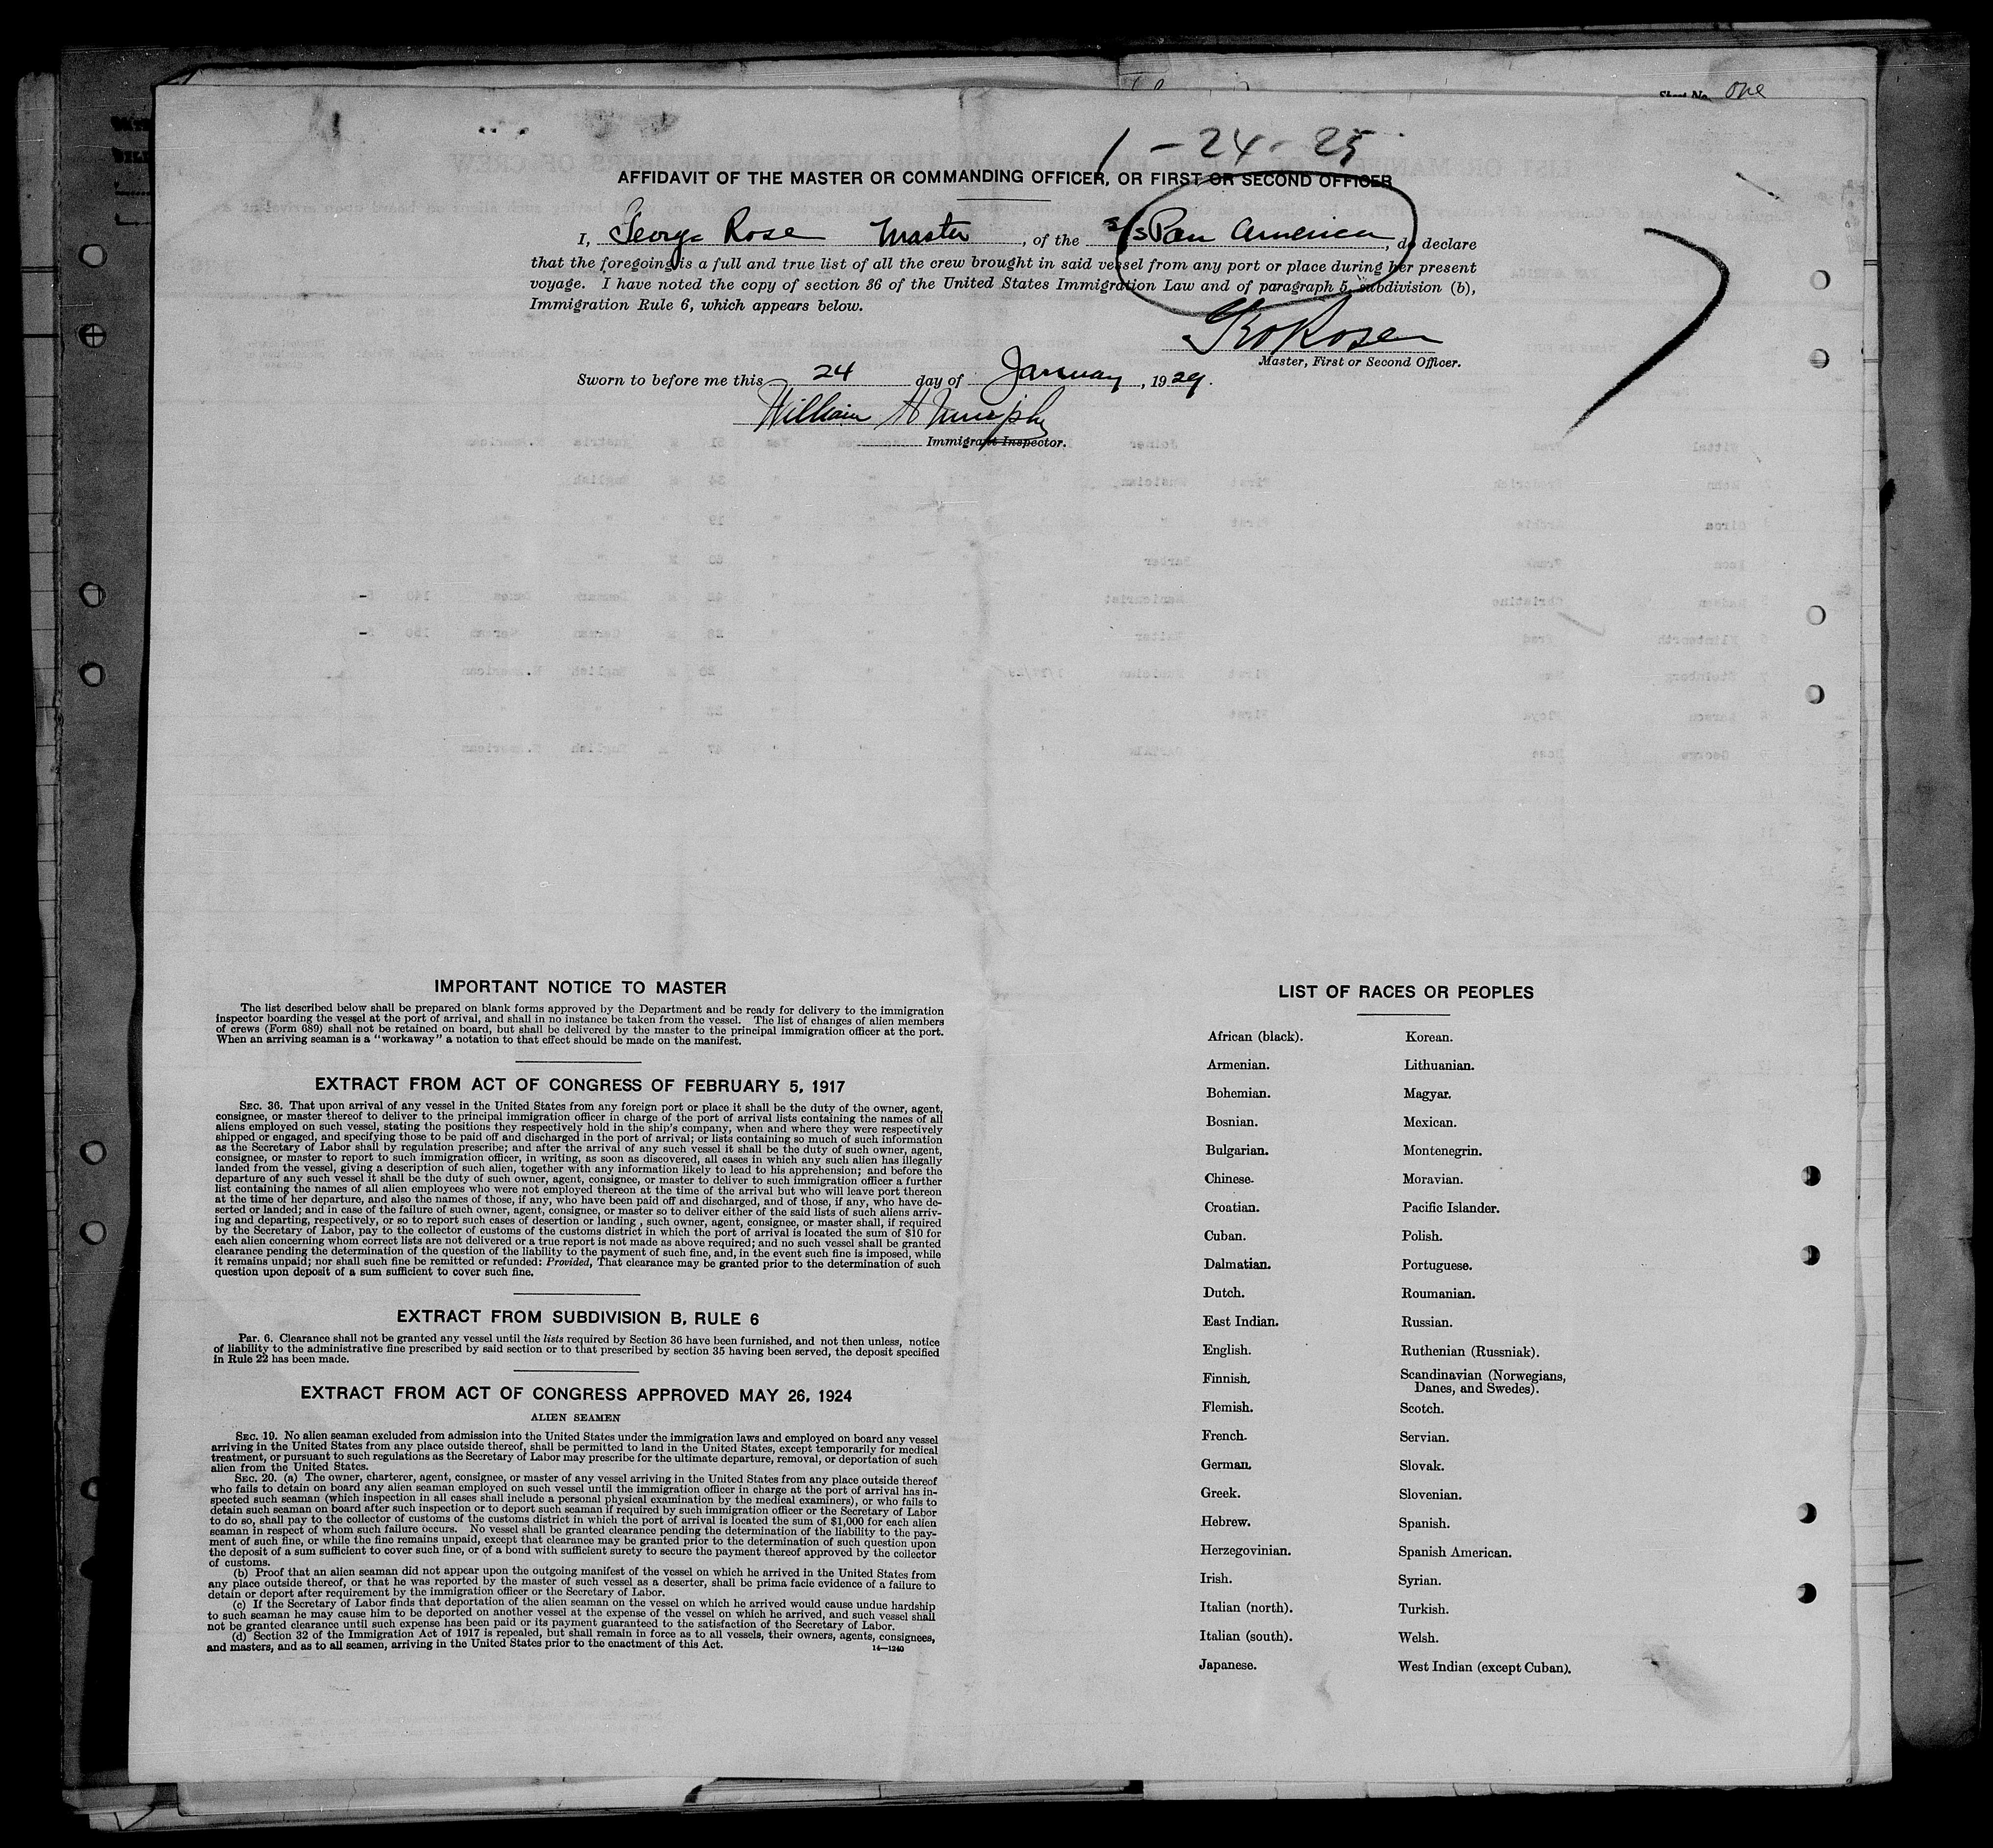 Sheet No. One
1-24-25
AFFIDAVIT OF THE MASTER OR COMMANDING OFFICER, OR FIRST OR SECOND OFFICER
I, George Rose Master, of the S/S Pan America, do declare
that the foregoing is a full and true list of all the crew brought in said vessel from any port or place during her present
voyage. I have noted the copy of section 36 of the United States Immigration Law and of paragraph 5, subdivision (b),
Immigration Rule 6, which appears below.
Geo Rose
Master, First or Second Officer.
Sworn to before me this 24 day of January, 1929.
William H Murphy
Immigrant Inspector.
IMPORTANT NOTICE TO MASTER
The list described below shall be prepared on blank forms approved by the Department and be ready for delivery to the immigration
inspector boarding the vessel at the port of arrival, and shall in no instance be taken from the vessel. The list of changes of alien members
of crews (Form 689) shall not be retained on board, but shall be delivered by the master to the principal immigration officer at the port.
When an arriving seaman is a "workaway" a notation to that effect should be made on the manifest.
EXTRACT FROM ACT OF CONGRESS OF FEBRUARY 5, 1917
SEC. 36. That upon arrival of any vessel in the United States from any foreign port or place it shall be the duty of the owner, agent,
consignee, or master thereof to deliver to the principal immigration officer in charge of the port of arrival lists containing the names of all
aliens employed on such vessel, stating the positions they respectively hold in the ship's company, when and where they were respectively
shipped or engaged, and specifying those to be paid off and discharged in the port of arrival; or lists containing so much of such information
as the Secretary of Labor shall by regulation prescribe; and after the arrival of any such vessel it shall be the duty of such owner, agent,
consignee, or master to report to such immigration officer, in writing, as soon as discovered, all cases in which any such alien has illegally
landed from the vessel, giving a description of such alien, together with any information likely to lead to his apprehension; and before the
departure of any such vessel it shall be the duty of such owner, agent, consignee, or master to deliver to such immigration officer a further
list containing the names of all alien employees who were not employed thereon at the time of the arrival but who will leave port thereon
at the time of her departure, and also the names of those, if any, who have been paid off and discharged, and of those, if any, who have de-
serted or landed; and in case of the failure of such owner, agent, consignee, or master so to deliver either of the said lists of such aliens arriv-
ing and departing, respectively, or so to report such cases of desertion or landing , such owner, agent, consignee, or master shall, if required
by the Secretary of Labor, pay to the collector of customs of the customs district in which the port of arrival is located the sum of $10 for
each alien concerning whom correct lists are not delivered or a true report is not made as above required; and no such vessel shall be granted
clearance pending the determination of the question of the liability to the payment of such fine, and, in the event such fine is imposed, while
it remains unpaid; nor shall such fine be remitted or refunded: Provided, That clearance may be granted prior to the determination of such
question upon deposit of a sum sufficient to cover such fine.
EXTRACT FROM SUBDIVISION B, RULE 6
Par. 6. Clearance shall not be granted any vessel until the lists required by Section 36 have been furnished, and not then unless, notice
of liability to the administrative fine prescribed by said section or to that prescribed by section 35 having been served, the deposit specified
in Rule 22 has been made.
EXTRACT FROM ACT OF CONGRESS APPROVED MAY 26, 1924
ALIEN SEAMEN
SEC. 19. No alien seaman excluded from admission into the United States under the immigration laws and employed on board any vessel
arriving in the United States from any place outside thereof, shall be permitted to land in the United States, except temporarily for medical
treatment, or pursuant to such regulations as the Secretary of Labor may prescribe for the ultimate departure, removal, or deportation of such
alien from the United States.
SEC. 20. (a) The owner, charterer, agent, consignee, or master of any vessel arriving in the United States from any place outside thereof
who fails to detain on board any alien seaman employed on such vessel until the immigration officer in charge at the port of arrival has in-
spected such seaman (which inspection in all cases shall include a personal physical examination by the medical examiners), or who fails to
detain such seaman on board after such inspection or to deport such seaman if required by such immigration officer or the Secretary of Labor
to do so, shall pay to the collector of customs of the customs district in which the port of arrival is located the sum of $1,000 for each alien
seaman in respect of whom such failure occurs. No vessel shall be granted clearance pending the determination of the liability to the pay-
ment of such fine, or while the fine remains unpaid, except that clearance may be granted prior to the determination of such question upon
the deposit of a sum sufficient to cover such fine, or of a bond with sufficient surety to secure the payment thereof approved by the collector
of customs.
(b) Proof that an alien seaman did not appear upon the outgoing manifest of the vessel on which he arrived in the United States from
any place outside thereof, or that he was reported by the master of such vessel as a deserter, shall be prima facie evidence of a failure to
detain or deport after requirement by the immigration officer or the Secretary of Labor.
(c) If the Secretary of Labor finds that deportation of the alien seaman on the vessel on which he arrived would cause undue hardship
to such seaman he may cause him to be deported on another vessel at the expense of the vessel on which he arrived, and such vessel shall
not be granted clearance until such expense has been paid or its payment guaranteed to the satisfaction of the Secretary of Labor.
(d) Section 32 of the Immigration Act of 1917 is repealed, but shall remain in force as to all vessels, their owners, agents, consignees,
and masters, and as to all seamen, arriving in the United States prior to the enactment of this Act.
14—1240
LIST OF RACES OR PEOPLES
African (black). Korean.
Armenian. Lithuanian.
Bohemian. Magyar.
Bosnian. Mexican.
Bulgarian. Montenegrin.
Chinese. Moravian.
Croatian. Pacific Islander.
Cuban. Polish.
Dalmatian. Portuguese.
Dutch. Roumanian.
East Indian. Russian.
English. Ruthenian (Russniak).
Finnish. Scandinavian (Norwegians,
Danes, and Swedes).
Flemish. Scotch.
French. Servian.
German. Slovak.
Greek. Slovenian.
Hebrew. Spanish.
Herzegovinian. Spanish American.
Irish. Syrian.
Italian (north). Turkish.
Italian (south). Welsh.
Japanese. West Indian (except Cuban).